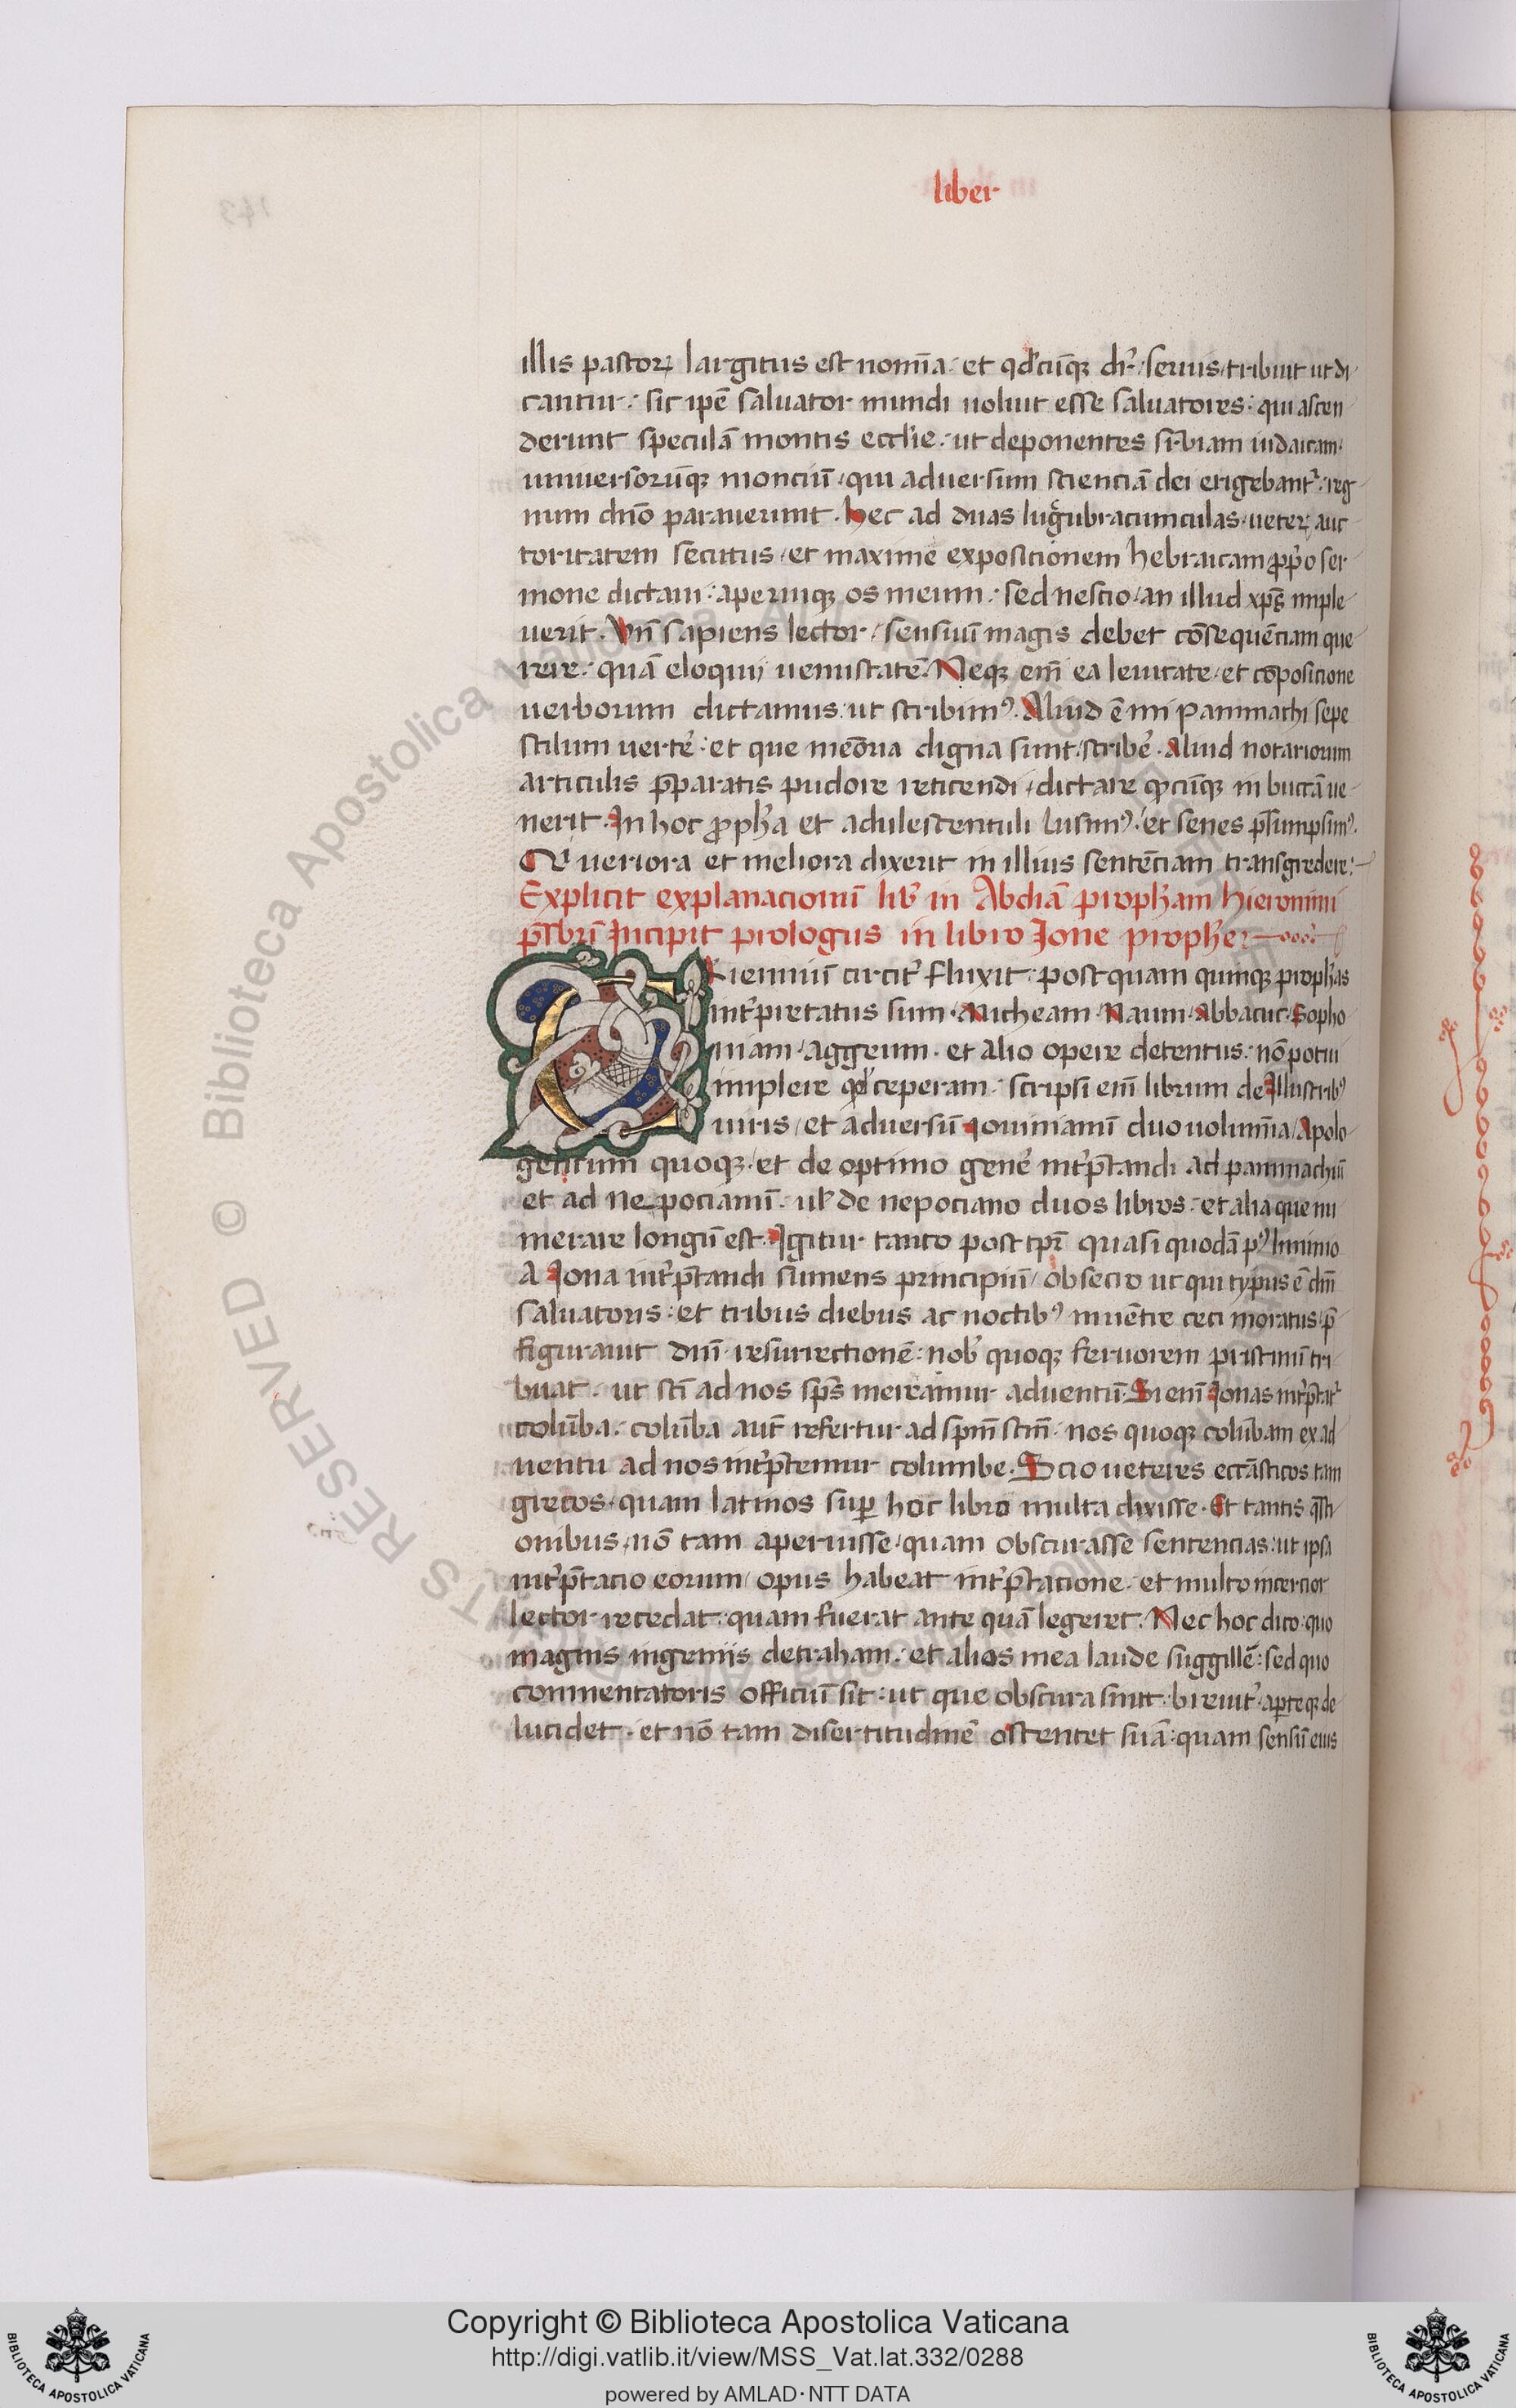 liber
illis pastoꝝ largitus est nomīa · et qd'cūqꝫ dr̄ · seruis tribuit ut di
cantur : sic ipē saluator mundi uoluit esse saluatores : qui ascen
derunt speculā montis eccl'ie · ut deponentes sinbiam iudaicam ·
uniuersorūqꝫ monciū / qui aduersum scienciā dei erigebant᷑ : reg
num dn̄o parauerunt · hec ad duas lugubracumculas · ueteꝝ auc
toritatem secutus / et maxime expositionem hebraicam ꝓpo ser
mone dictaui : aperuiqꝫ os meum : sed nescio / an illud xp̄s imple
uerit · Vn̄ sapiens lector / sensuū magis debet cōsequēciam que
rere : quā eloquij uenustatē · Neqꝫ em̄ ea leuitate · et cōposicione
uerborum dictamus : ut scribimꝰ · Aliud ē mi Pammachi sepe
stilum uerte᷑ : et que meōria digna sunt / scribe᷑ · aliud notariorum
articulis p̄paratis pudore reticendi / dictare qcūqꝫ in buccā ue
nerit · In hoc ꝓph'a et adulescentuli lusimꝰ · et senes p̄sumpsimꝰ ·
Qi ueriora et meliora dixerit in illius sentēciam transgredere :
Explicit explanacionū lib' in Abdiā proph'am hieronimi
p̄sbr̄i Incipit prologus in libro Ione prophe
Triennuū circit᷑ fluxit : postquam quinqꝫ proph'as
int᷑pretatus sum · Micheam · Naum · Abbacuc · Sopho
niam · aggeum · et alio opere detentus : nō potui
implere qd' ceperam : scripsi em̄ librum de Illustribꝰ
uiris / et aduersū Iouinianū duo uolumīa / Apolo
geticum quoqꝫ · et de optimo gene᷑ int᷑p̄tandi ad pammachiū
et ad nepocianū · ul' de nepociano duos libros · et alia que nu
merare longū est · Igitur tanto post tpr̄ quasi quodā pꝰ liminio
A Iona int᷑p̄tandi sumens principiū / obsecro ut qui typus ē dn̄i
saluatoris : et tribus diebus ac noctibꝰ in uentre ceti moratus / p̄
figurauit dni resurrectionē : nob' quoqꝫ feruorem pristinū tri
buat · ut sc̄i ad nos sp̄s mereamur aduentū · Si enī Ionas int᷑p̄tat᷑
colūba : colūba aut̄ refertur ad sp̄m sc̄m · nos quoqꝫ colūbam ex ad
uentu ad nos int᷑p̄temur columbe · Scio ueteres eccāsticos tam
grecos · quam latinos suꝑ hoc libro multa dixisse · Et tantis q̄sti
onibus / nō tam aperuisse / quam obscurasse sentencias : ut ipsa
int᷑p̄tacio eorum / opus habeat int᷑p̄tacione · et multo incercior
lector recedat : quam fuerat ante quā legeret · Nec hoc dico : quo
magnis ingenijs detraham : et alios mea laude suggillē : sed quo
commentatoris officiū sit : ut que obscura sunt · breuit᷑ · aperteqꝫ de
lucidet · et nō tam disertitudinē ostentet suā : quam sensū eius
Biblioteca Apostolica Vaticana
Copyright © Biblioteca Apostolica Vaticana
http://digi.vatlib.it/view/MSS_Vat.lat.332/0288
powered by AMLAD·NTT DATA